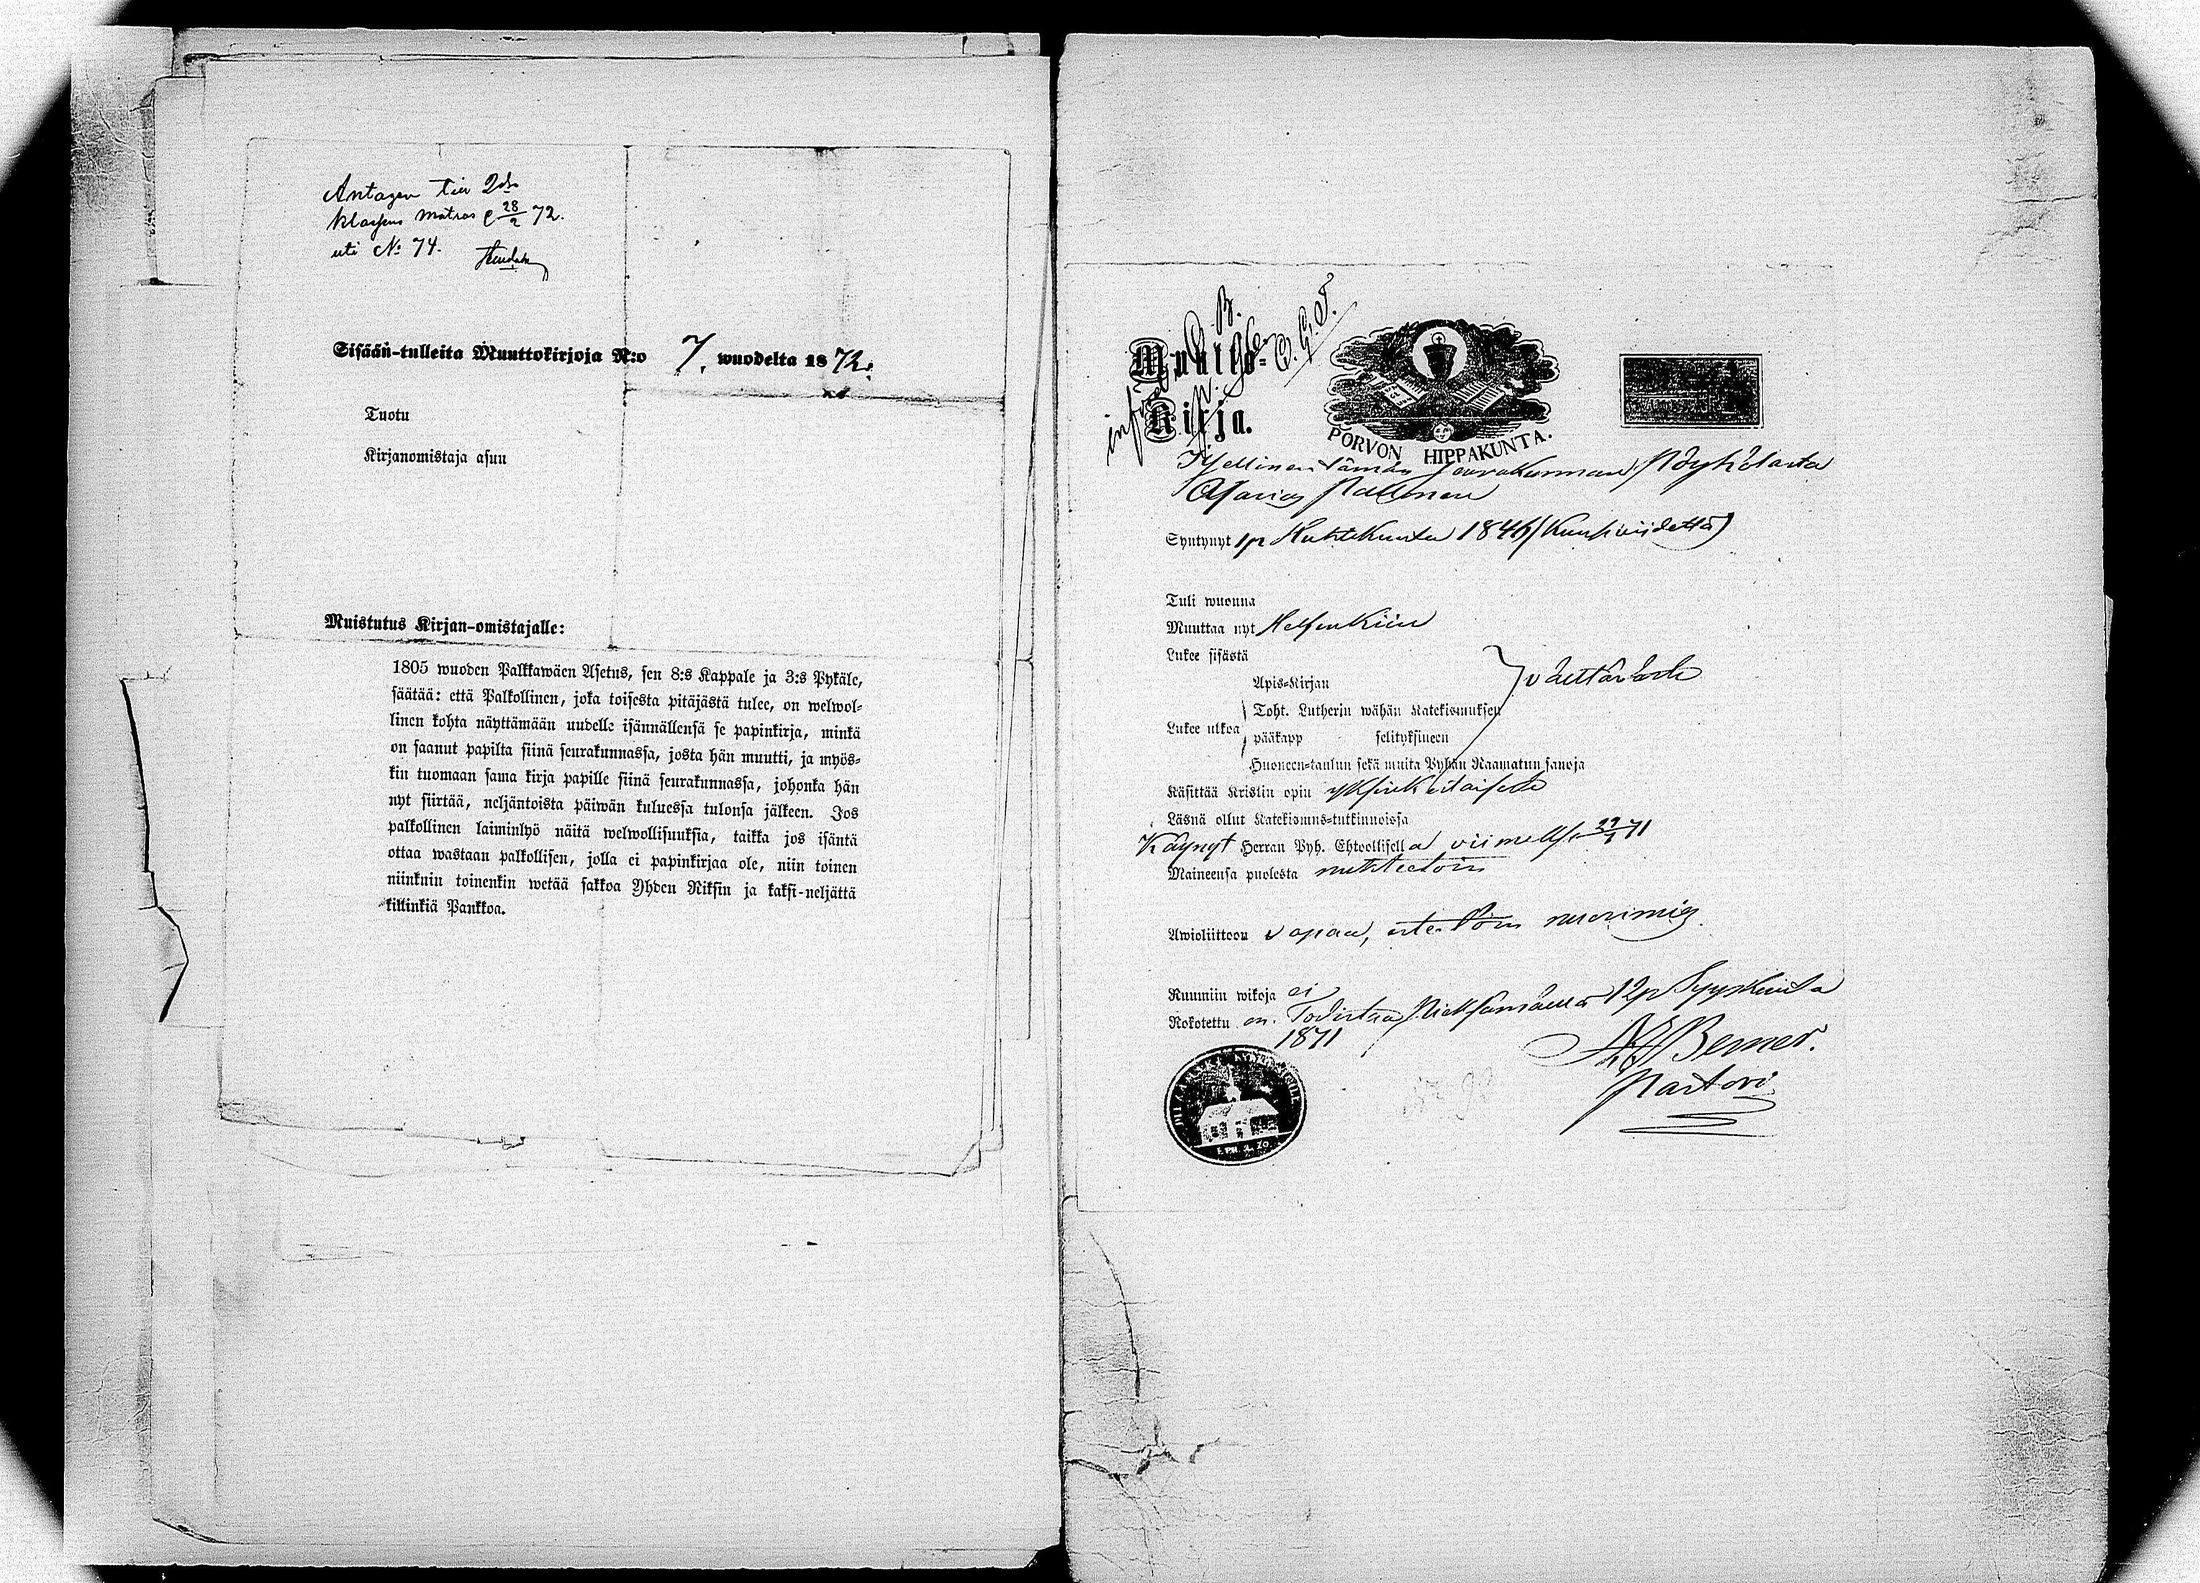 Antagen till 2dra
klassens matros d 28/2 72.
uti No 74.
Sisään-tulleita Muuttokirjoja N:o 7. wuodelta 1872.
Tuotu
Kirjanomistaja asuu
Muistutus Kirjan-omistajalle:
1805 wuoden Palkkawäen Asetus, sen 8:s Kappale ja 3:s Pykäle,
säätää: että Palkollinen, joka toisesta pitäjästä tulee, on welwol-
linen kohta näyttämään uudelle isännällensä se papinkirja, minkä
on saanut papilta siinä seurakunnassa, josta hän muutti, ja myös-
kin tuomaan sama kirja papille siinä seurakunnassa, johonka hän
nyt siirtää, neljäntoista päiwän kuluessa tulonsa jälkeen. Jos
palkollinen laiminlyö näitä welwollisuuksia, taikka jos isäntä
ottaa wastaan palkollisen, jolla ei papinkirjaa ole, niin toinen
niinkuin toinenkin wetää sakkoa Yhden Riksin ja kaksi-neljättä
killinkiä Pankkoa.
B.
O. G. T.
Muutto-
Kirja.
PORVON HIPPAKUNTA.
Itsellinen tämän seurakunnan Pöyhölästä
Asarias Pallonen
Syntynyt 1p Huhtikuuta 1846 (Kuusiviidettä)
Tuli wuonna
Muuttaa nyt Helsinkiin
Lukee sisästä
Apis-Kirjan
Toht. Lutherin wähän Katekismuksen
Lukee ulkoa
pääkapp selityksineen
välttävästi
Huoneen-taulun sekä muita Pyhän Raamatun sanoja
Käsittää Kristin opin yksinkertaisesti
Läsnä ollut Katekismus-tutkinnoissa
Käynyt Herran Pyh. Ehtoollisella viimeksi 71
Maineensa puolesta nuhteetoin
Awioliittoon vapaa, esteetöin nuorimies
Ruumiin wikoja ei
Rokotettu on. Todistaa Pieksämäellä 12p Syyskuuta
1871
Berner.
Pastori